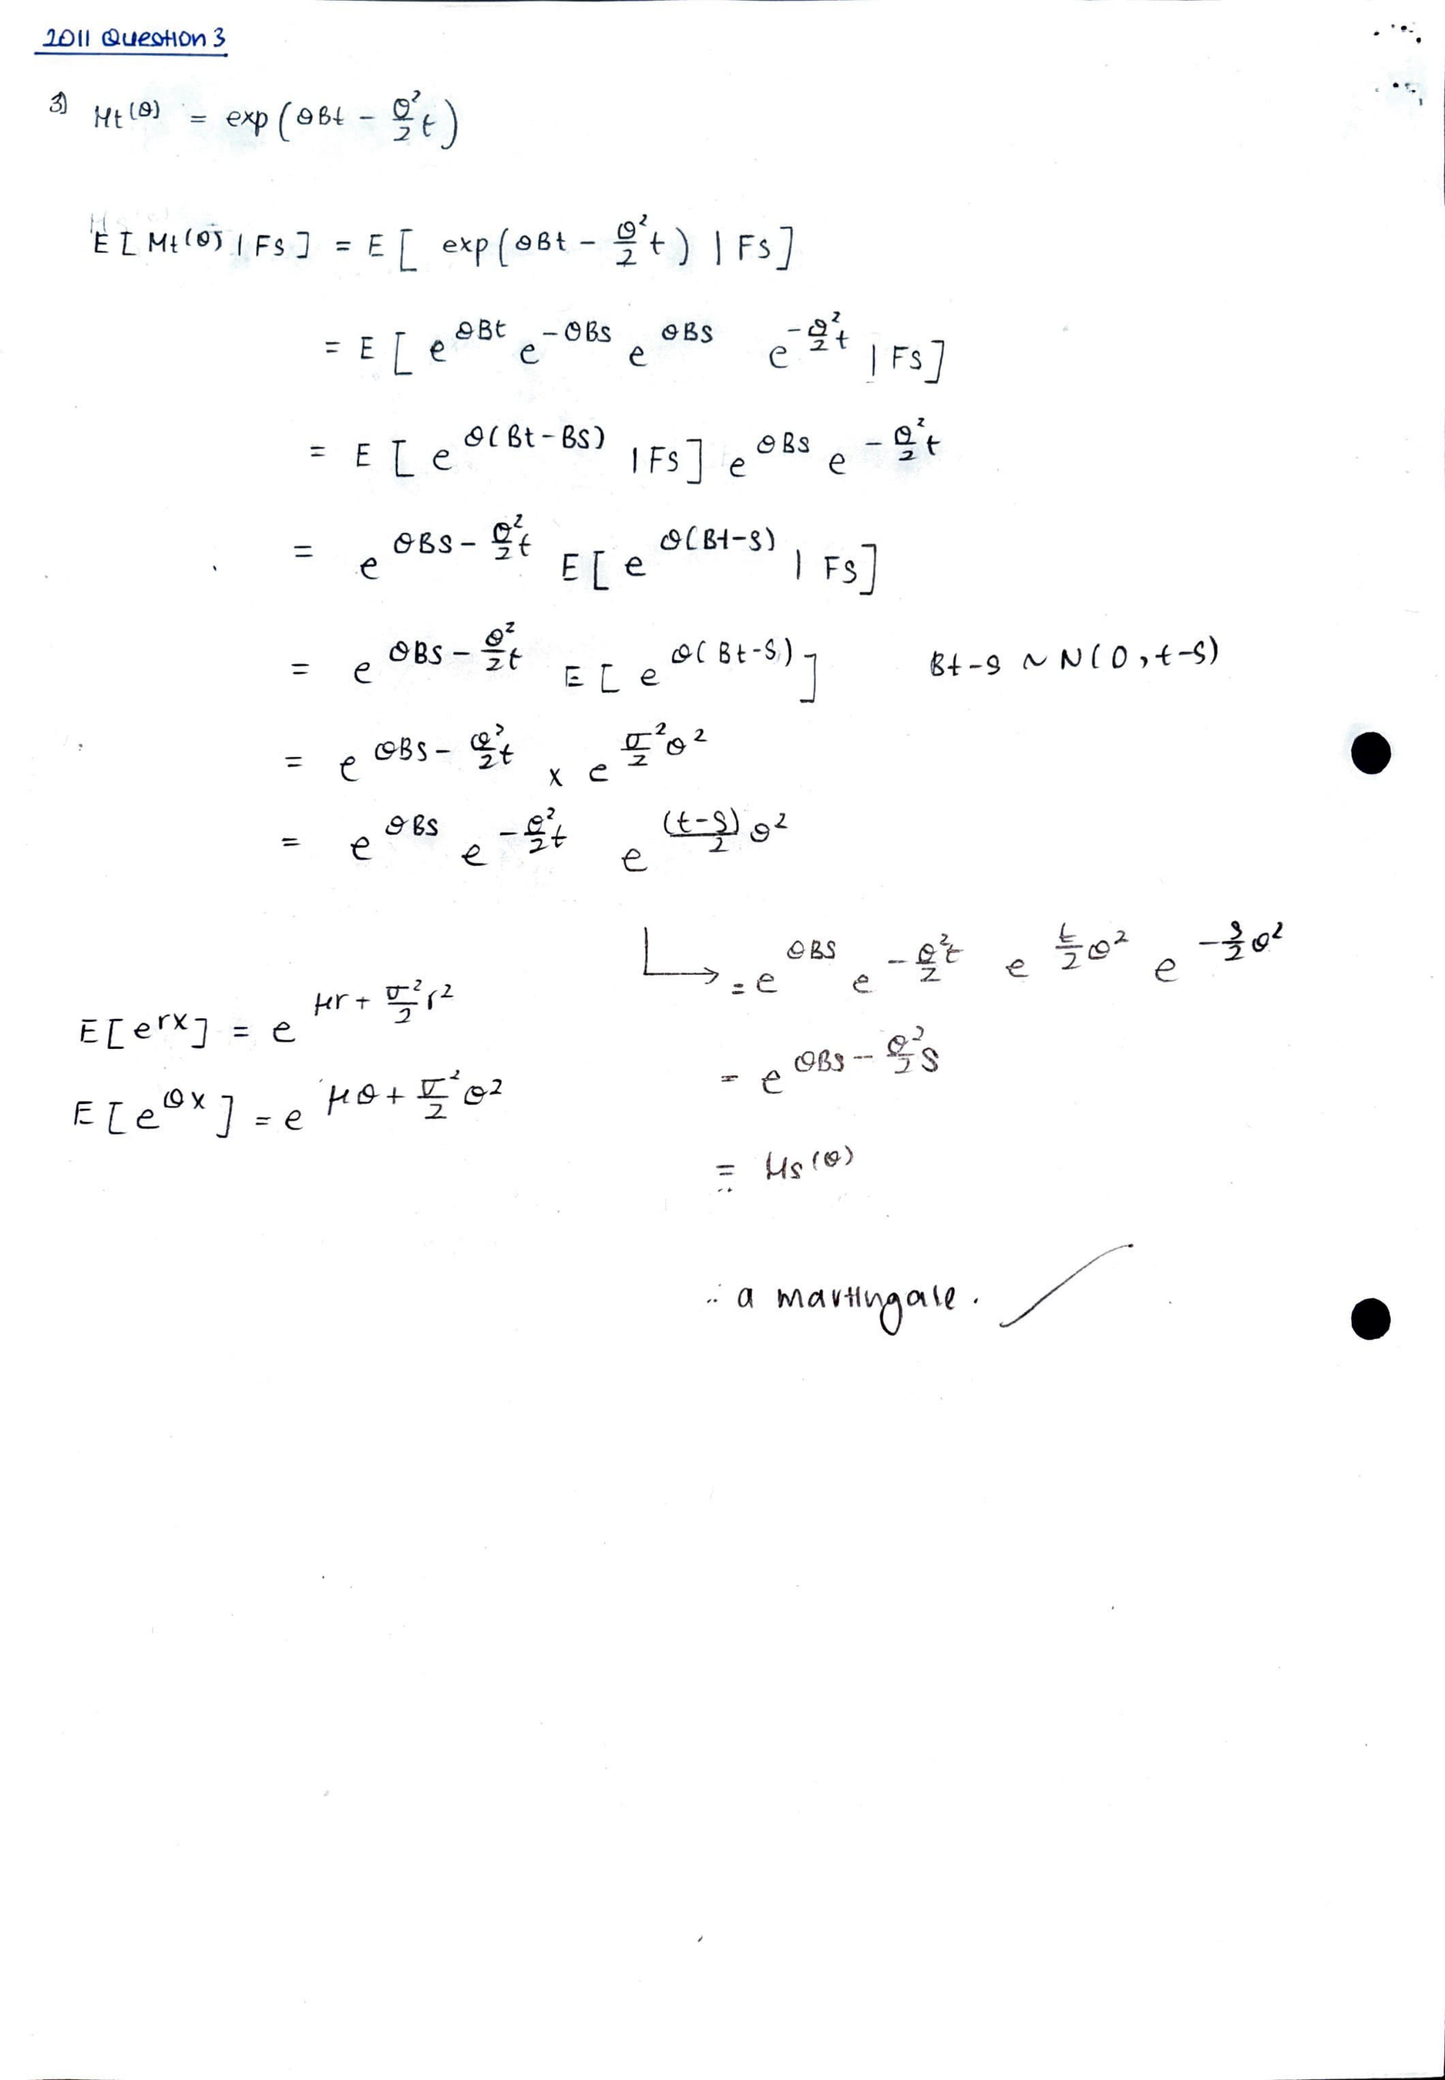 2011 Question 3
3) Mt(θ) = exp(θBt - θ²/2 t)
E[Mt(θ) | Fs] = E[ exp(θBt - θ²/2 t) | Fs]
= E[e^θBt e^-θBs e^θBs e^-θ²/2 t | Fs]
= E[e^θ(Bt-Bs) | Fs] e^θBs e^-θ²/2 t
= e^θBs-θ²/2 t E[e^θ(Bt-s) | Fs]
= e^θBs-θ²/2 t E[e^θ(Bt-s)] Bt-s ~ N(0, t-s)
= e^θBs-θ²/2 t x e^σ²/2 θ²
= e^θBs e^-θ²/2 t e^(t-s)/2 θ²
= e^θBs e^-θ²/2 t e^t/2 θ² e^-s/2 θ²
= e^θBs-θ²/2 s
= Ms(θ)
∴ a martingale.
E[e^rx] = e^μr+σ²/2 r²
E[e^θx] = e^μθ+σ²/2 θ²